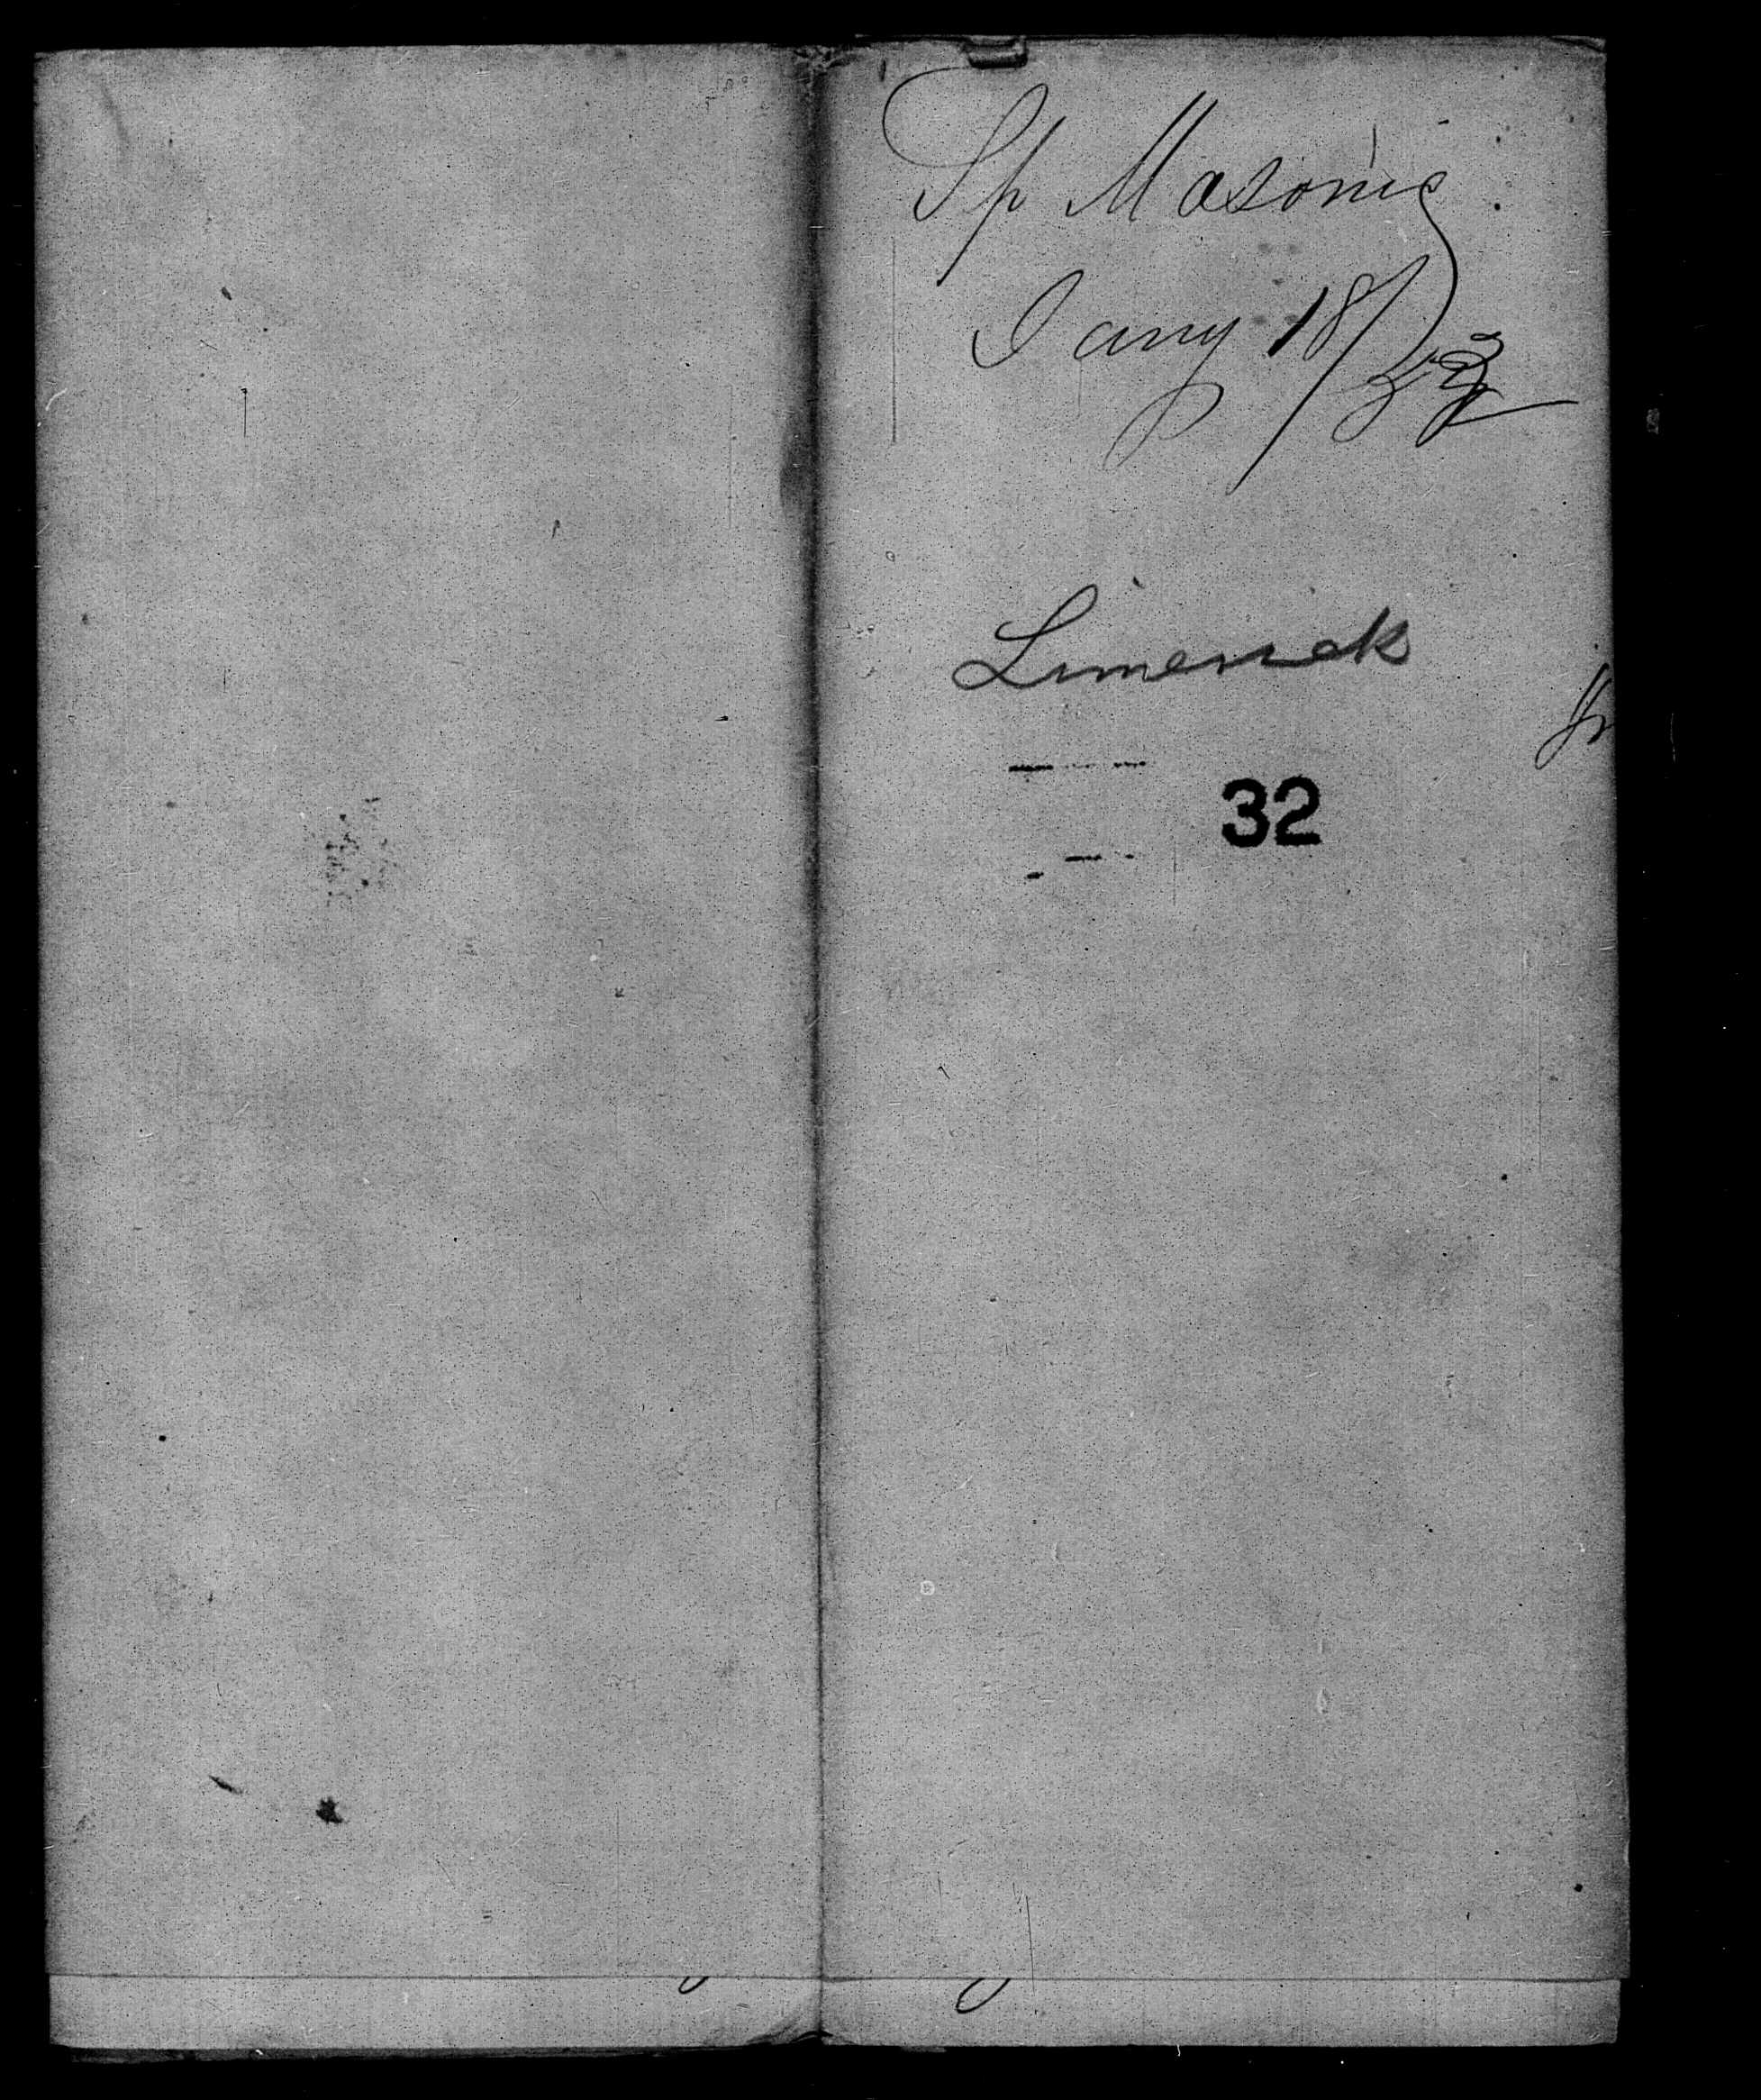 Sp Masonic
Jany 18/
Limerick
32